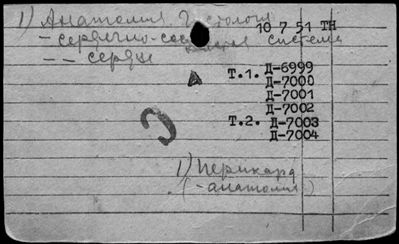 1) Анатомия Гистология
10 7 51 ТН
- сердечно-сос система
- - сердце
Т.1. Д-6999
Д-7000
Д-7001
Д-7002
Т.2. Д-7003
Д-7004
1) Перикард
(-анатомия)